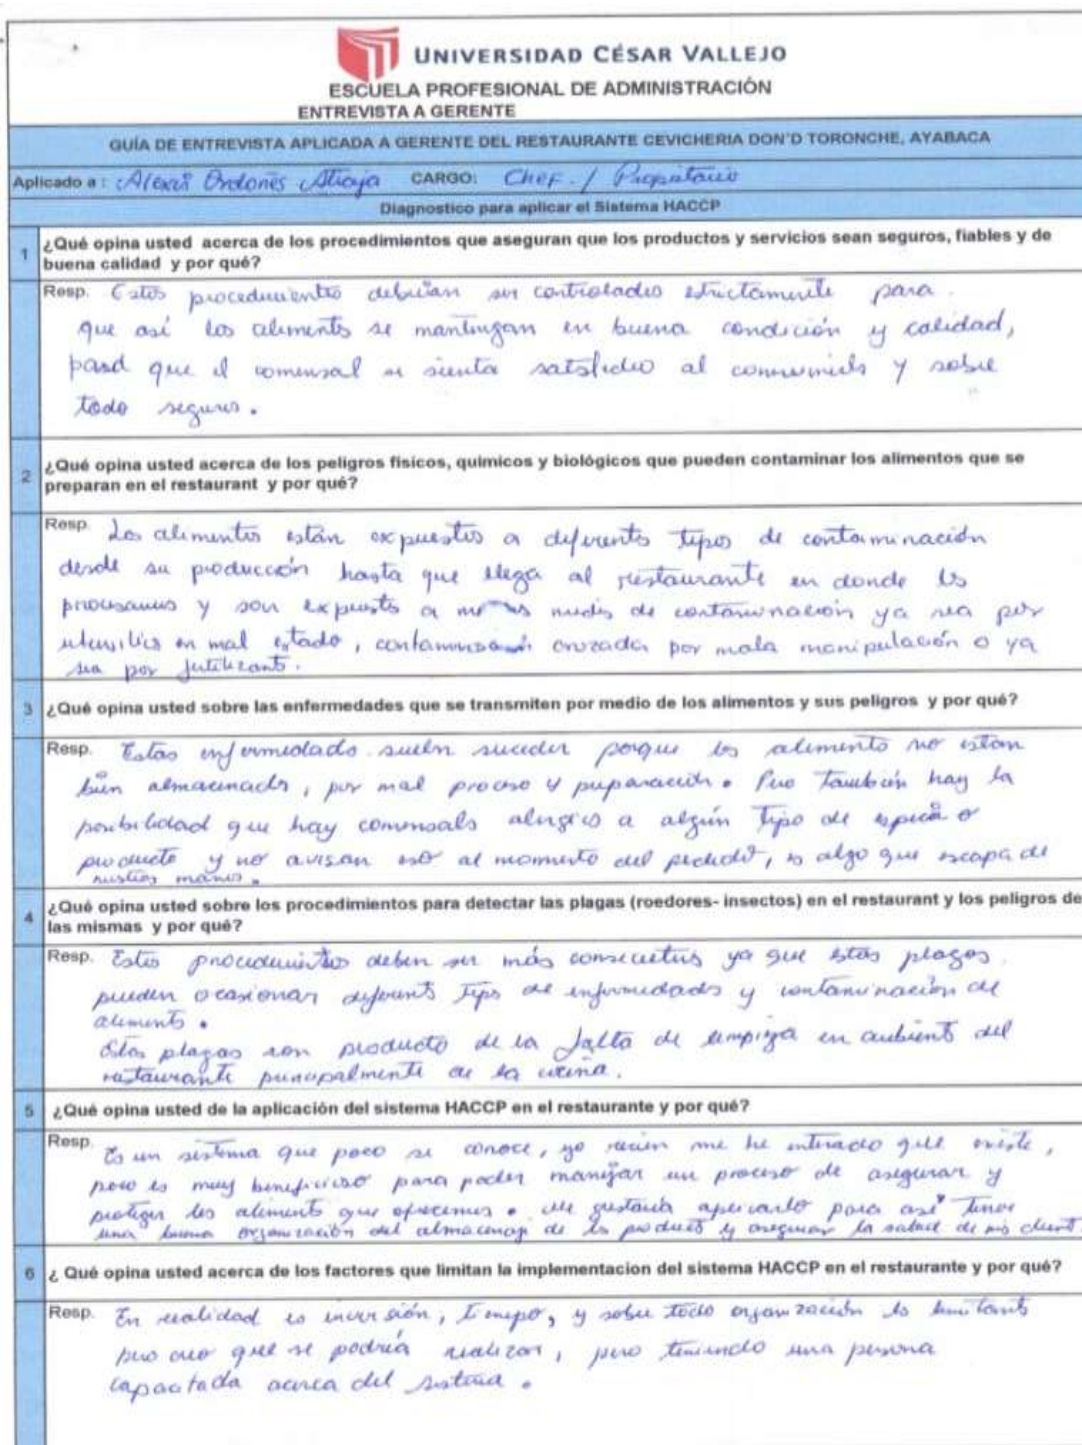 UNIVERSIDAD CÉSAR VALLEJO
ESCUELA PROFESIONAL DE ADMINISTRACIÓN
ENTREVISTA A GERENTE
GUÍA DE ENTREVISTA APLICADA A GERENTE DEL RESTAURANTE CEVICHERIA DON'D TORONCHE, AYABACA
Aplicado a : Alexis Ordoñes CARGO: Chef. / Propietario
Diagnostico para aplicar el Sistema HACCP
1 ¿Qué opina usted acerca de los procedimientos que aseguran que los productos y servicios sean seguros, fiables y de
buena calidad y por qué?
Resp. Estos procedimientos deberían ser controlados estrictamente para
que así los alimentos se mantengan en buena condición y calidad,
para que el comensal se sienta satisfecho al consumirlo y sobre
todo seguros.
2 ¿Qué opina usted acerca de los peligros físicos, quimicos y biológicos que pueden contaminar los alimentos que se
preparan en el restaurant y por qué?
Resp. Los alimentos están expuestos a diferents tipos de contaminación
desde su producción hasta que llega al restaurante en donde los
procesamos y son expuestos a medis de contaminación ya sea por
utensilios en mal estado, contaminación cruzada por mala manipulación o ya
sea por
3 ¿Qué opina usted sobre las enfermedades que se transmiten por medio de los alimentos y sus peligros y por qué?
Resp. Estas enfermedads suelen suceder porque los alimento no están
bien almacenads, por mal proceso y preparación. Pero también hay la
posibilidad que hay comensals alergicos a algún tipo de especia o
producto y no avisan eso al momento del pedido, es algo que escapa de
nuestras manos.
4 ¿Qué opina usted sobre los procedimientos para detectar las plagas (roedores- insectos) en el restaurant y los peligros de
las mismas y por qué?
Resp. Estos procedimientos deben ser más ya que estas plagas
pueden ocasionar diferents tipos de enfermedads y contaminación de
aliments.
Estas plagas son producto de la falta de limpieza en ambients del
restaurante principalmente de la cocina.
5 ¿Qué opina usted de la aplicación del sistema HACCP en el restaurante y por qué?
Resp. Es un sistema que poco se conoce, yo recien me he enterado que existe,
pero es muy beneficioso para poder manejar un proceso de asegurar y
proteger los aliments que ofrecemos. Me gustaría aplicarlo para así tener
una buena organización del almacenaj de los products y asegurar la salud de mis client.
6 ¿ Qué opina usted acerca de los factores que limitan la implementacion del sistema HACCP en el restaurante y por qué?
Resp. En realidad es inversión, tiempo, y sobre todo organización los limitants
pero creo que se podría realizar, pero teniendo una persona
capacitada acerca del sistema.